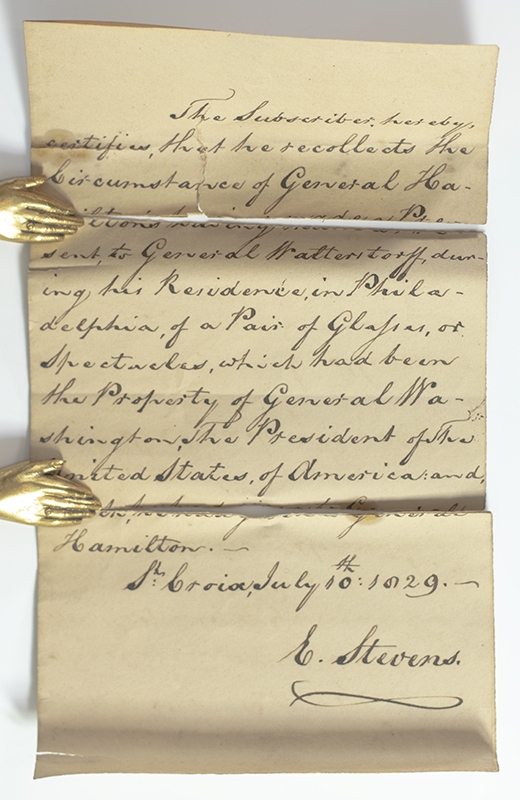 The Subscriber, hereby,
certifies, that he recollects the
Circumstance of General Ha-
milton's having made a Pre-
sent, to General Walterstorff, dur-
ing his Residence, in Phila-
delphia, of a Pair of Glasses, or
Spectacles, which had been
the Property of General Wa-
shington, The President of The
United States, of America: and,
he had given to General
Hamilton. —
St. Croix, July 10th: 1829. —
E. Stevens.